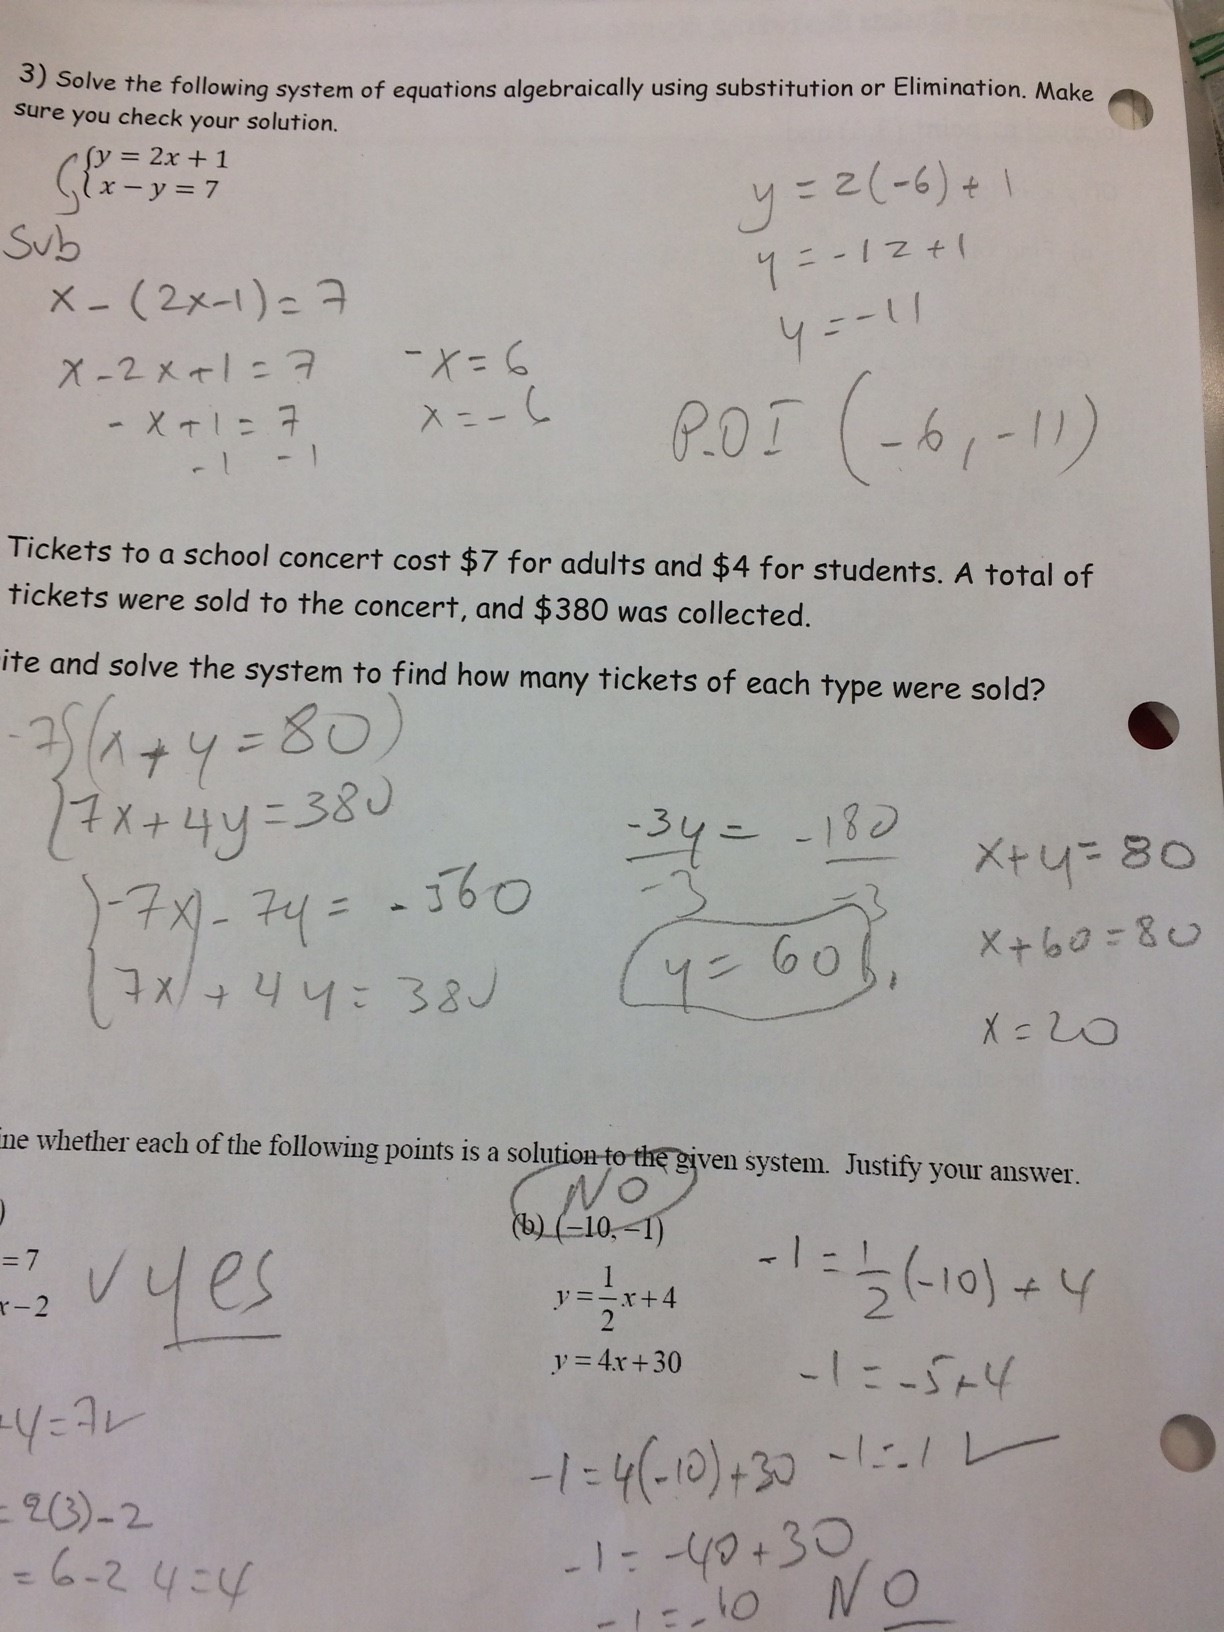 3) Solve the following system of equations algebraically using substitution or Elimination. Make
sure you check your solution.
{y = 2x + 1
x − y = 7
Sub
x - (2x-1) = 7
x - 2x + 1 = 7
- x + 1 = 7
-1 -1
-x = 6
x = -6
y = 2(-6) + 1
y = -12 + 1
y = -11
P.O.I (-6, -11)
Tickets to a school concert cost $7 for adults and $4 for students. A total of
tickets were sold to the concert, and $380 was collected.
ite and solve the system to find how many tickets of each type were sold?
-7{(x + y = 80)
7x + 4y = 380
{-7x - 7y = -560
7x + 4y = 380
-3y = -180
-3 -3
y = 60
x + y = 80
x + 60 = 80
x = 20
ine whether each of the following points is a solution to the given system. Justify your answer.
)
= 7
x − 2
✓ yes
+4=7✓
= 2(3)-2
= 6-2 4=4
NO
(b) (−10, −1)
y = 1/2 x + 4
y = 4x + 30
-1 = 1/2 (-10) + 4
-1 = -5 + 4
-1 = -1 ✓
-1 = 4(-10) + 30
-1 = -40 + 30
-1 = -10 NO